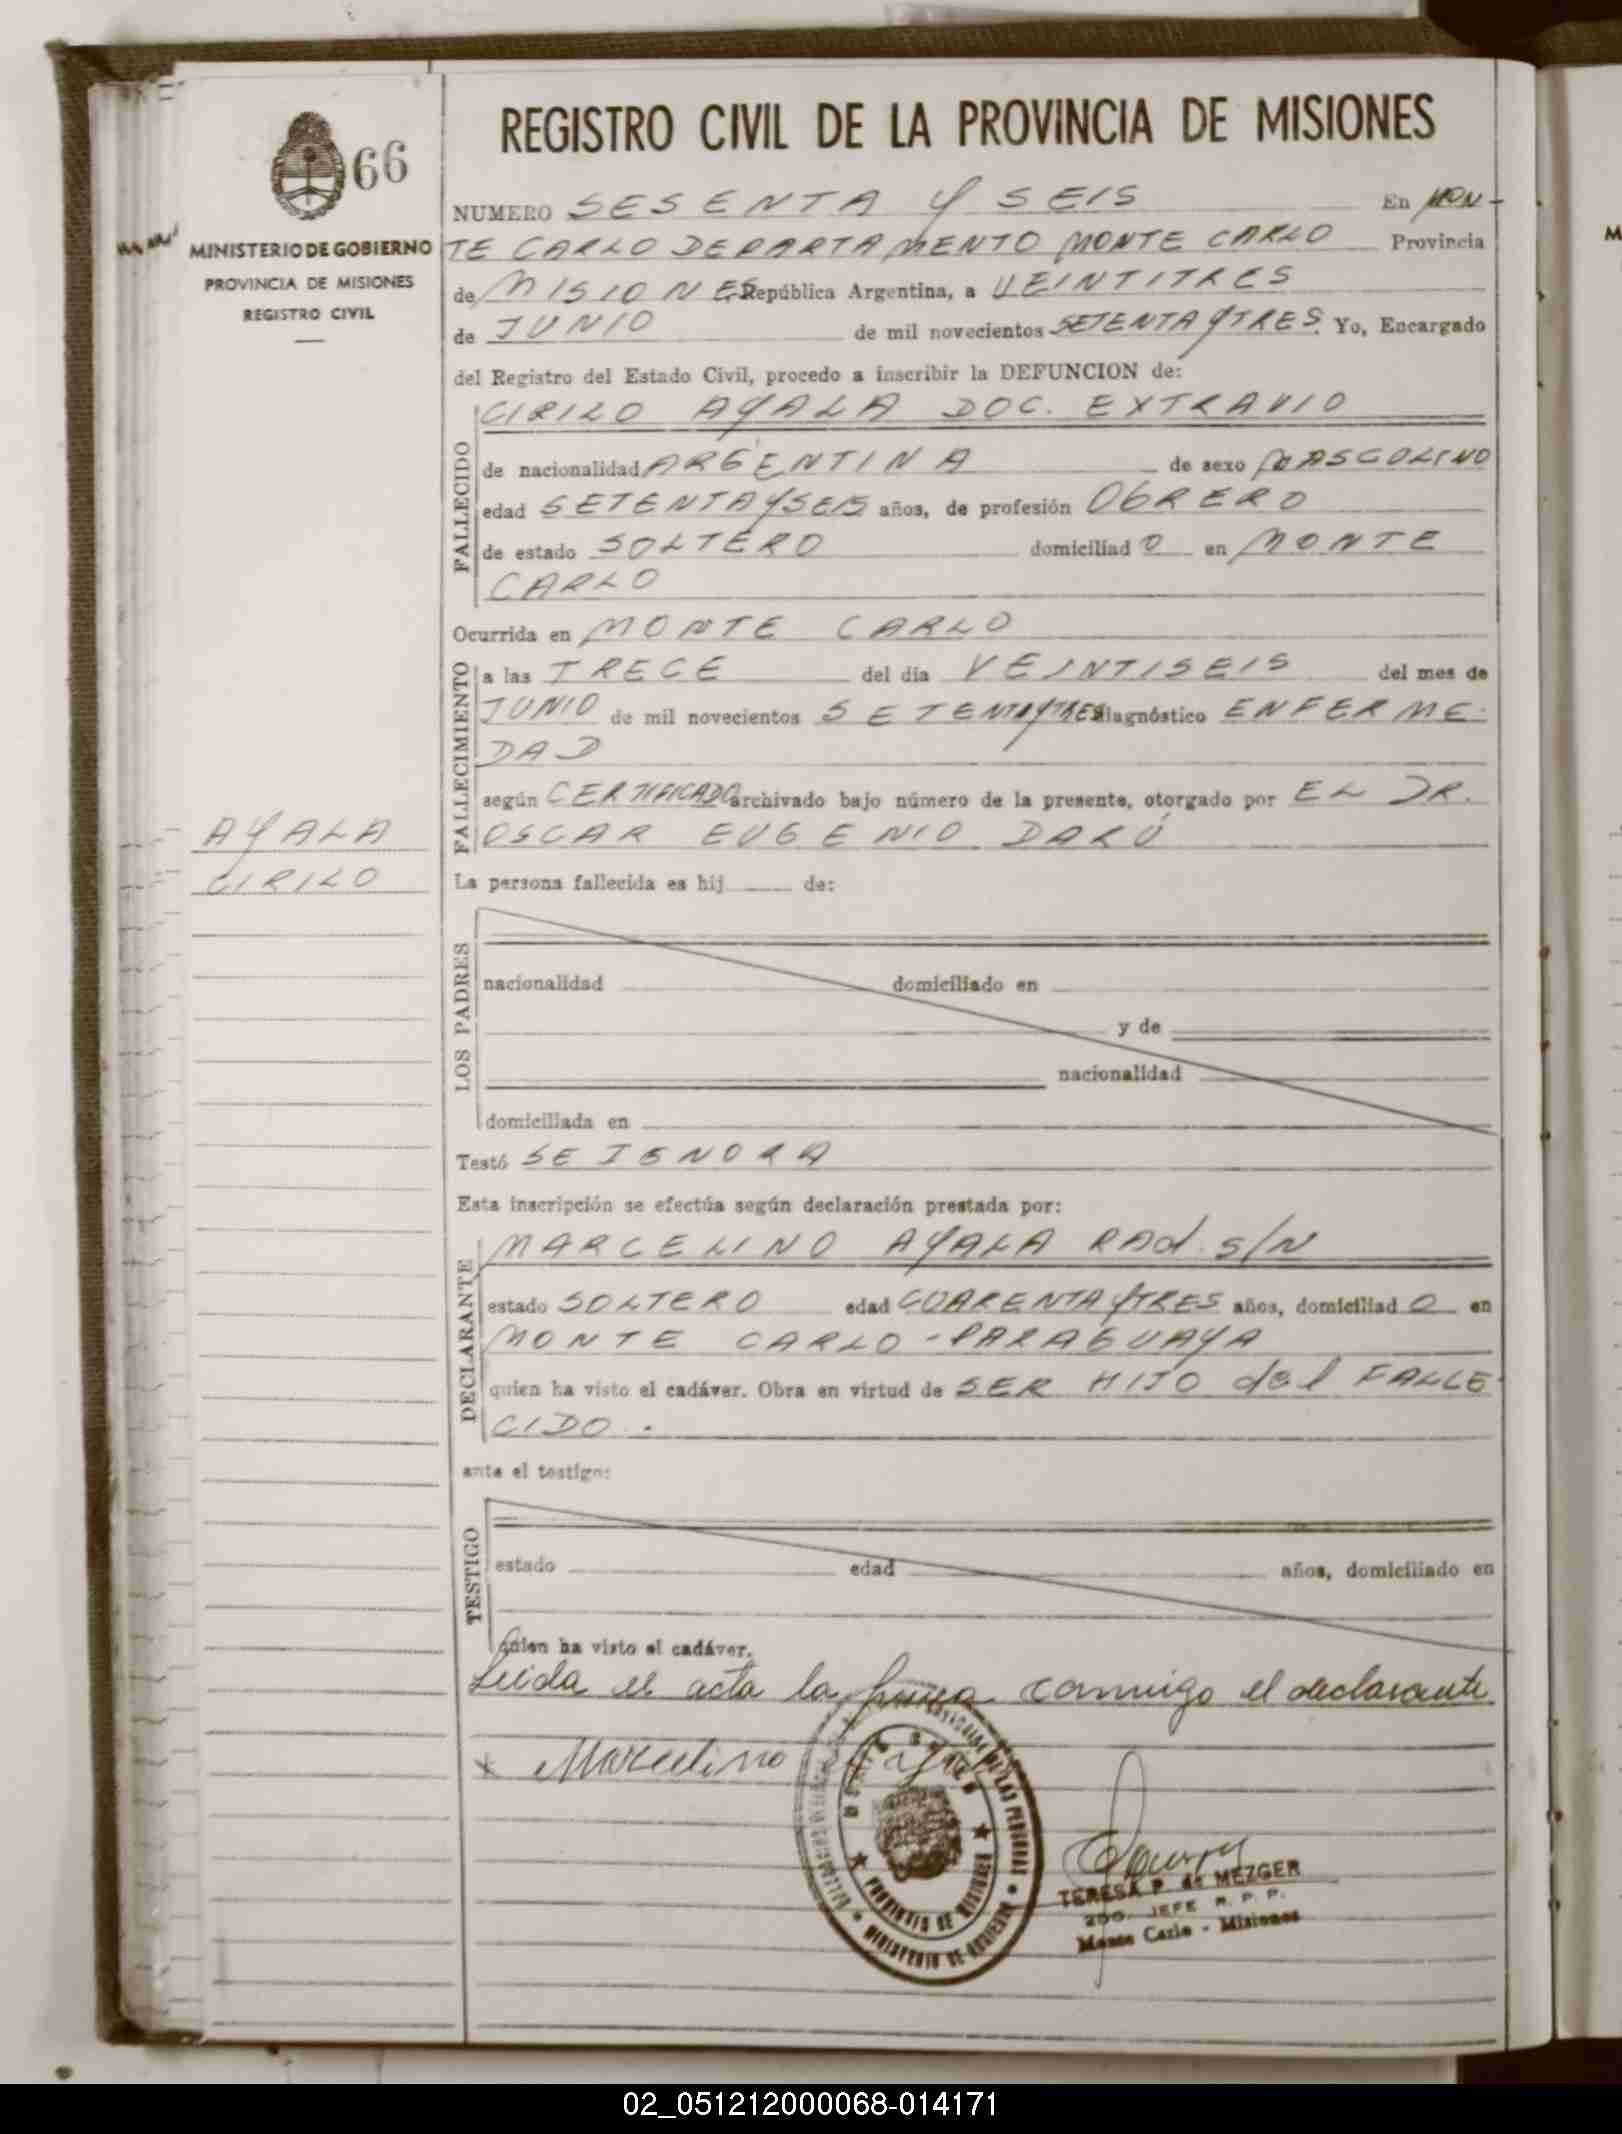 REGISTRO CIVIL DE LA PROVINCIA DE MISIONES
66
MINISTERIO DE GOBIERNO
PROVINCIA DE MISIONES
REGISTRO CIVIL
NUMERO SESENTA Y SEIS En MON-
TE CARLO DEPARTAMENTO MONTE CARLO Provincia
de MISIONES República Argentina, a VEINTITRES
de JUNIO de mil novecientos SETENTA Y TRES. Yo, Encargado
del Registro del Estado Civil, procedo a inscribir la DEFUNCION de:
FALLECIDO
CIRILO AYALA DOC. EXTRAVIO
de nacionalidad ARGENTINA de sexo MASCOLINO
edad SETENTA Y SEIS años, de profesión OBRERO
de estado SOLTERO domiciliad O en MONTE
CARLO
Ocurrida en MONTE CARLO
FALLECIMIENTO
a las TRECE del día VEINTISEIS del mes de
JUNIO de mil novecientos SETENTA Y TRES diagnóstico ENFERME-
DAD
según CERTIFICADO archivado bajo número de la presente, otorgado por EL DR.
OSCAR EUGENIO DARÚ
AYALA
CIRILO
La persona fallecida es hij de:
LOS PADRES
nacionalidad domiciliado en
y de
nacionalidad
domiciliada en
Testó SE IGNORA
Esta inscripción se efectúa según declaración prestada por:
DECLARANTE
MARCELINO AYALA RAd. S/N
estado SOLTERO edad CUARENTA Y TRES años, domiciliad O en
MONTE CARLO - PARAGUAYA
quien ha visto el cadáver. Obra en virtud de SER HIJO del FALLE
CIDO.
ante el testigo:
TESTIGO
estado edad años, domiciliado en
quien ha visto el cadáver.
Leida el acta la firma conmigo el declarante
x Marcelino
PROVINCIA DE MISIONES
MINISTERIO DE GOBIERNO
TERESA P. de MEZGER
JEFE R. P. P.
Monte Carlo - Misiones
02_051212000068-014171